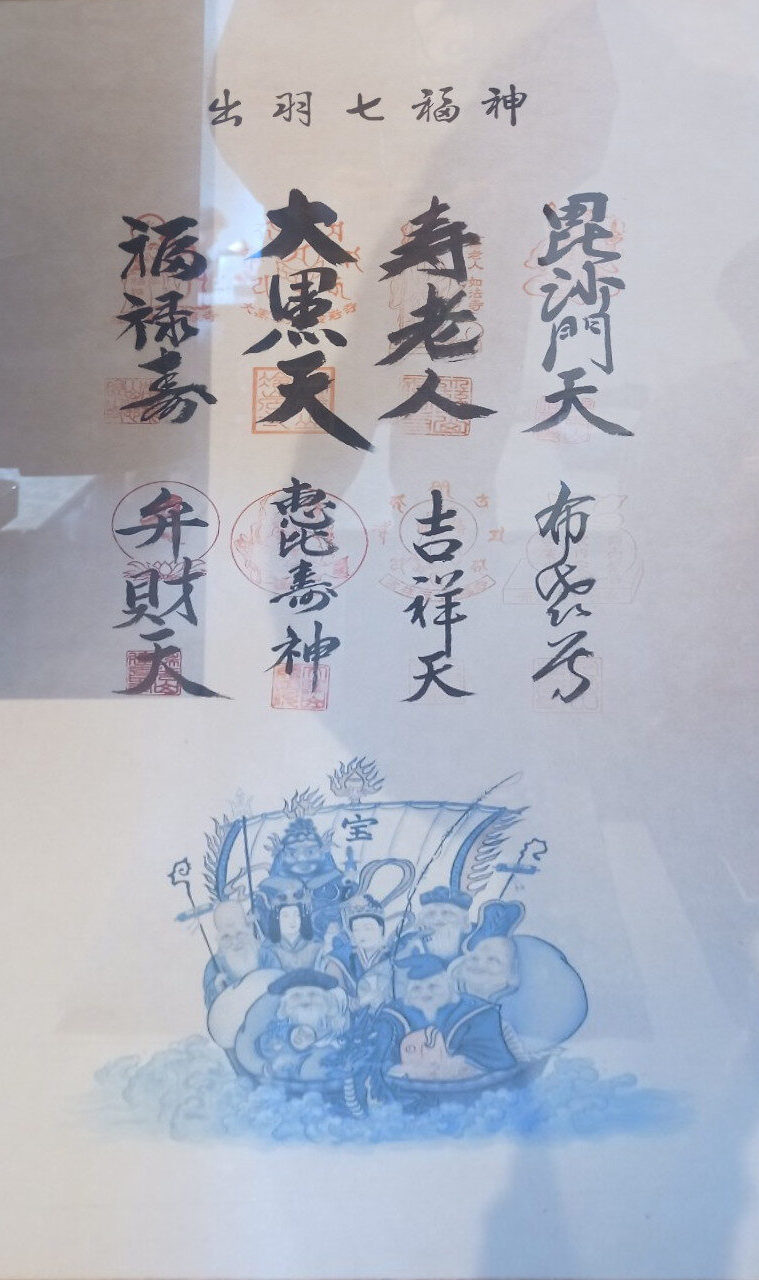 出羽七福神
毘沙門天
寿老人
大黒天
福禄寿
布袋尊
吉祥天
恵比寿神
弁財天
宝